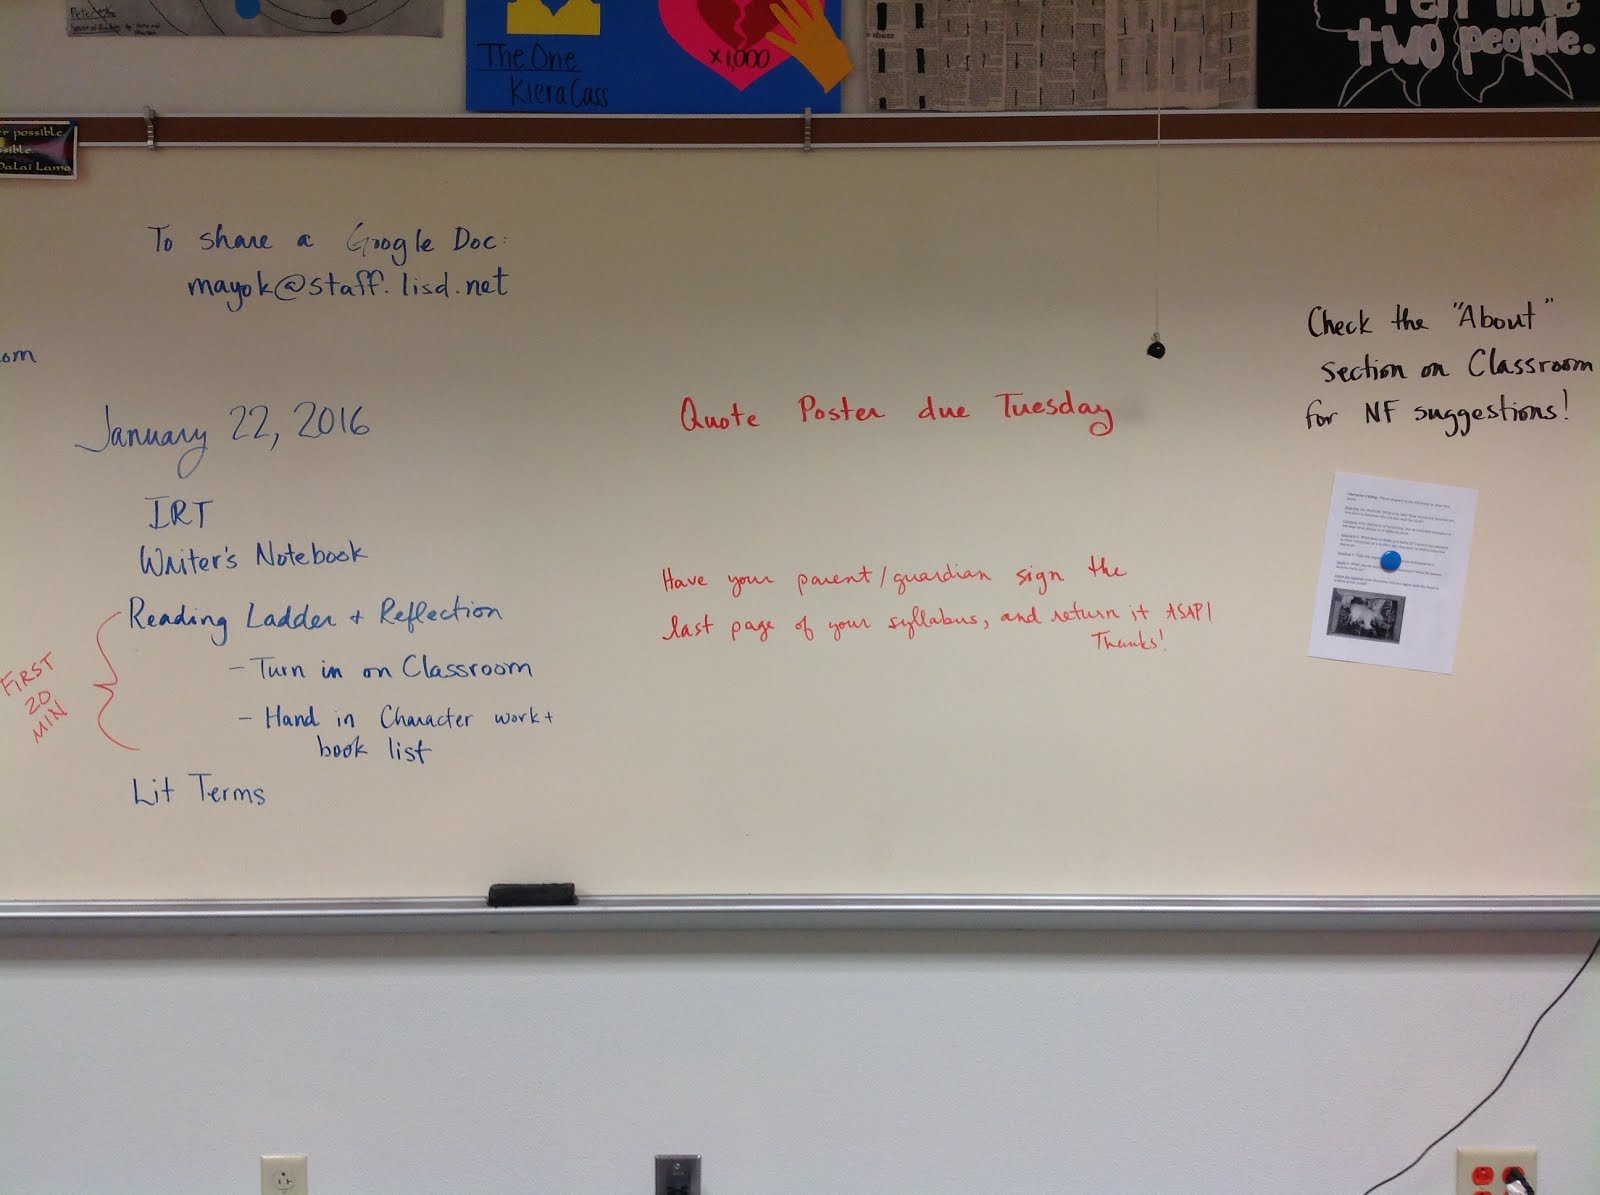 The One
Kiera Cass
x1,000
two people.
possible
Dalai Lama
To share a Google Doc:
mayok@staff.lisd.net
om
January 22, 2016
IRT
Writer's Notebook
Reading Ladder + Reflection
- Turn in on Classroom
- Hand in Character work +
book list
Lit Terms
FIRST
20
MIN
Quote Poster due Tuesday
Have your parent/guardian sign the
last page of your syllabus, and return it ASAP!
Thanks!
Check the "About"
section on Classroom
for NF suggestions!